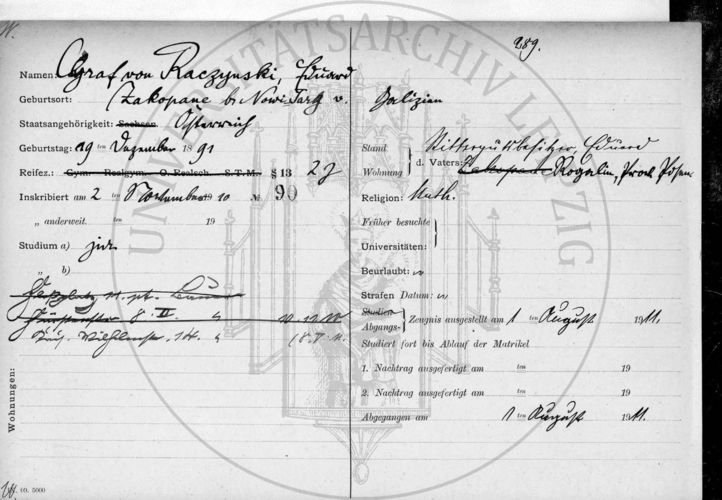 289.
Namen: Graf von Raczynski, Eduard
Geburtsort: Zakopane b. Nowi-Targ v. Galizien
Staatsangehörigkeit: Sachsen. Österreich
Geburtstag: 19 ten Dezember 1891
Reifez.: Gym. Realgym. O.-Realsch. S.T.M. § 13 2 J
Inskribiert am 2 ten November 1910 № 90
„ anderweit. ten 19
Studium a) jur.
„ b)
II.
14.
Wohnungen:
60. 5000
Stand Rittergutsbesitzer, Eduard
d. Vaters:
Wohnung Zakopane Rogalin, Prov. Posen
Religion: Kath.
Früher besuchte
Universitäten:
Beurlaubt:
Strafen Datum:
Studien-
Abgangs- Zeugnis ausgestellt am 1 ten August 1911.
Studiert fort bis Ablauf der Matrikel
1. Nachtrag ausgefertigt am ten 19
2. Nachtrag ausgefertigt am ten 19
Abgegangen am 1 ten August 1911.
UNIVERSITÄTSARCHIV LEIPZIG